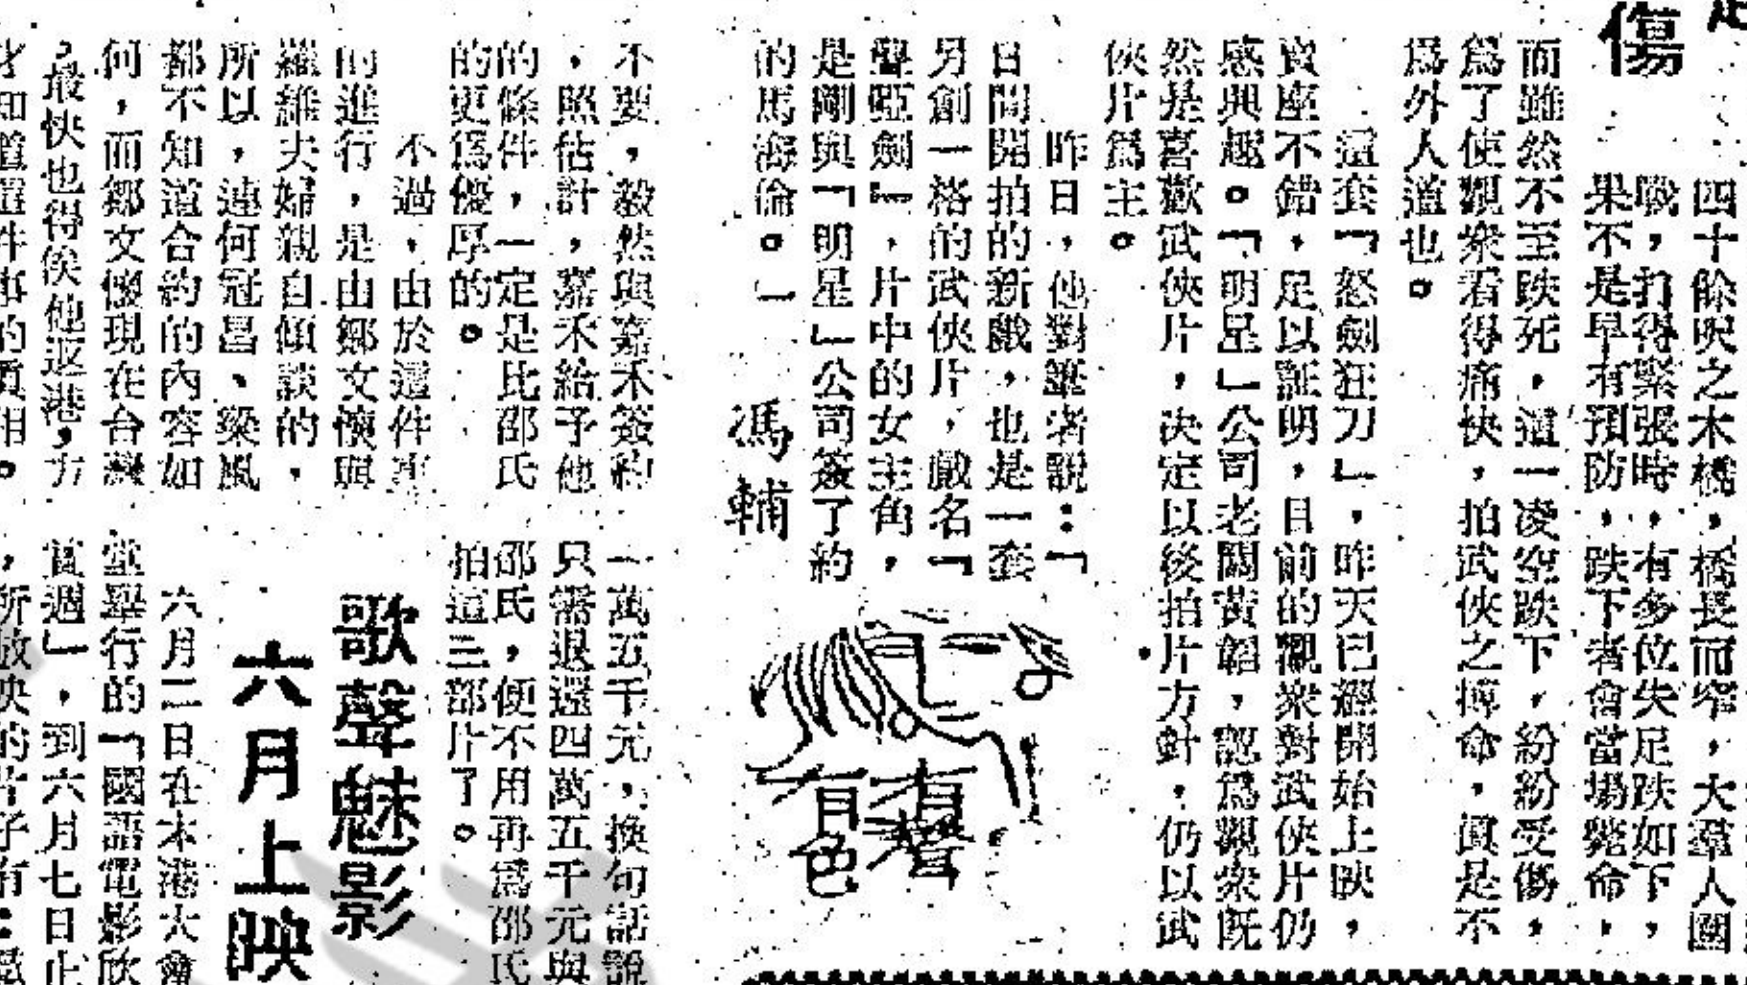 傷
四十餘呎之木橋，橋長而窄，大羣人圍
戰，打得緊張時，有多位失足跌如下，
果不是早有預防，跌下者會當場斃命，
而雖然不至跌死，這一凌空跌下，紛紛受傷，
爲了使觀衆看得痛快，拍武俠之搏命，眞是不
爲外人道也。
這套「怒劍狂刀」，昨天已經開始上映，
賣座不錯，足以証明，目前的觀衆對武俠片仍
感興趣。「明星」公司老闆黃韜，認爲觀衆旣
然是喜歡武俠片，决定以後拍片方針，仍以武
俠片爲主。
昨日，他對筆者說：「
日間開拍的新戲，也是一套
另創一格的武俠片，戲名「
聾啞劍」，片中的女主角，
是剛與「明星」公司簽了約
的馬海倫。」
馮輔
有聲
有色
不要，毅然與嘉禾簽約
，照估計，嘉禾給予他
的條件，一定是比邵氏
的更爲優厚的。
不過，由於這件事
的進行，是由鄒文懷與
羅維夫婦親自傾談的，
所以，連何冠昌、梁風
都不知道合約的內容如
何，而鄒文懷現在台灣
，最快也得俟他返港，方
才知道這件事的眞相。
一萬五千元，換句話說
只需退還四萬五千元與
邵氏，便不用再爲邵氏
拍這三部片了。
歌聲魅影
六月上映
六月二日在本港大會
堂舉行的「國語電影欣
賞週」，到六月七日止
，所放映的片子有：